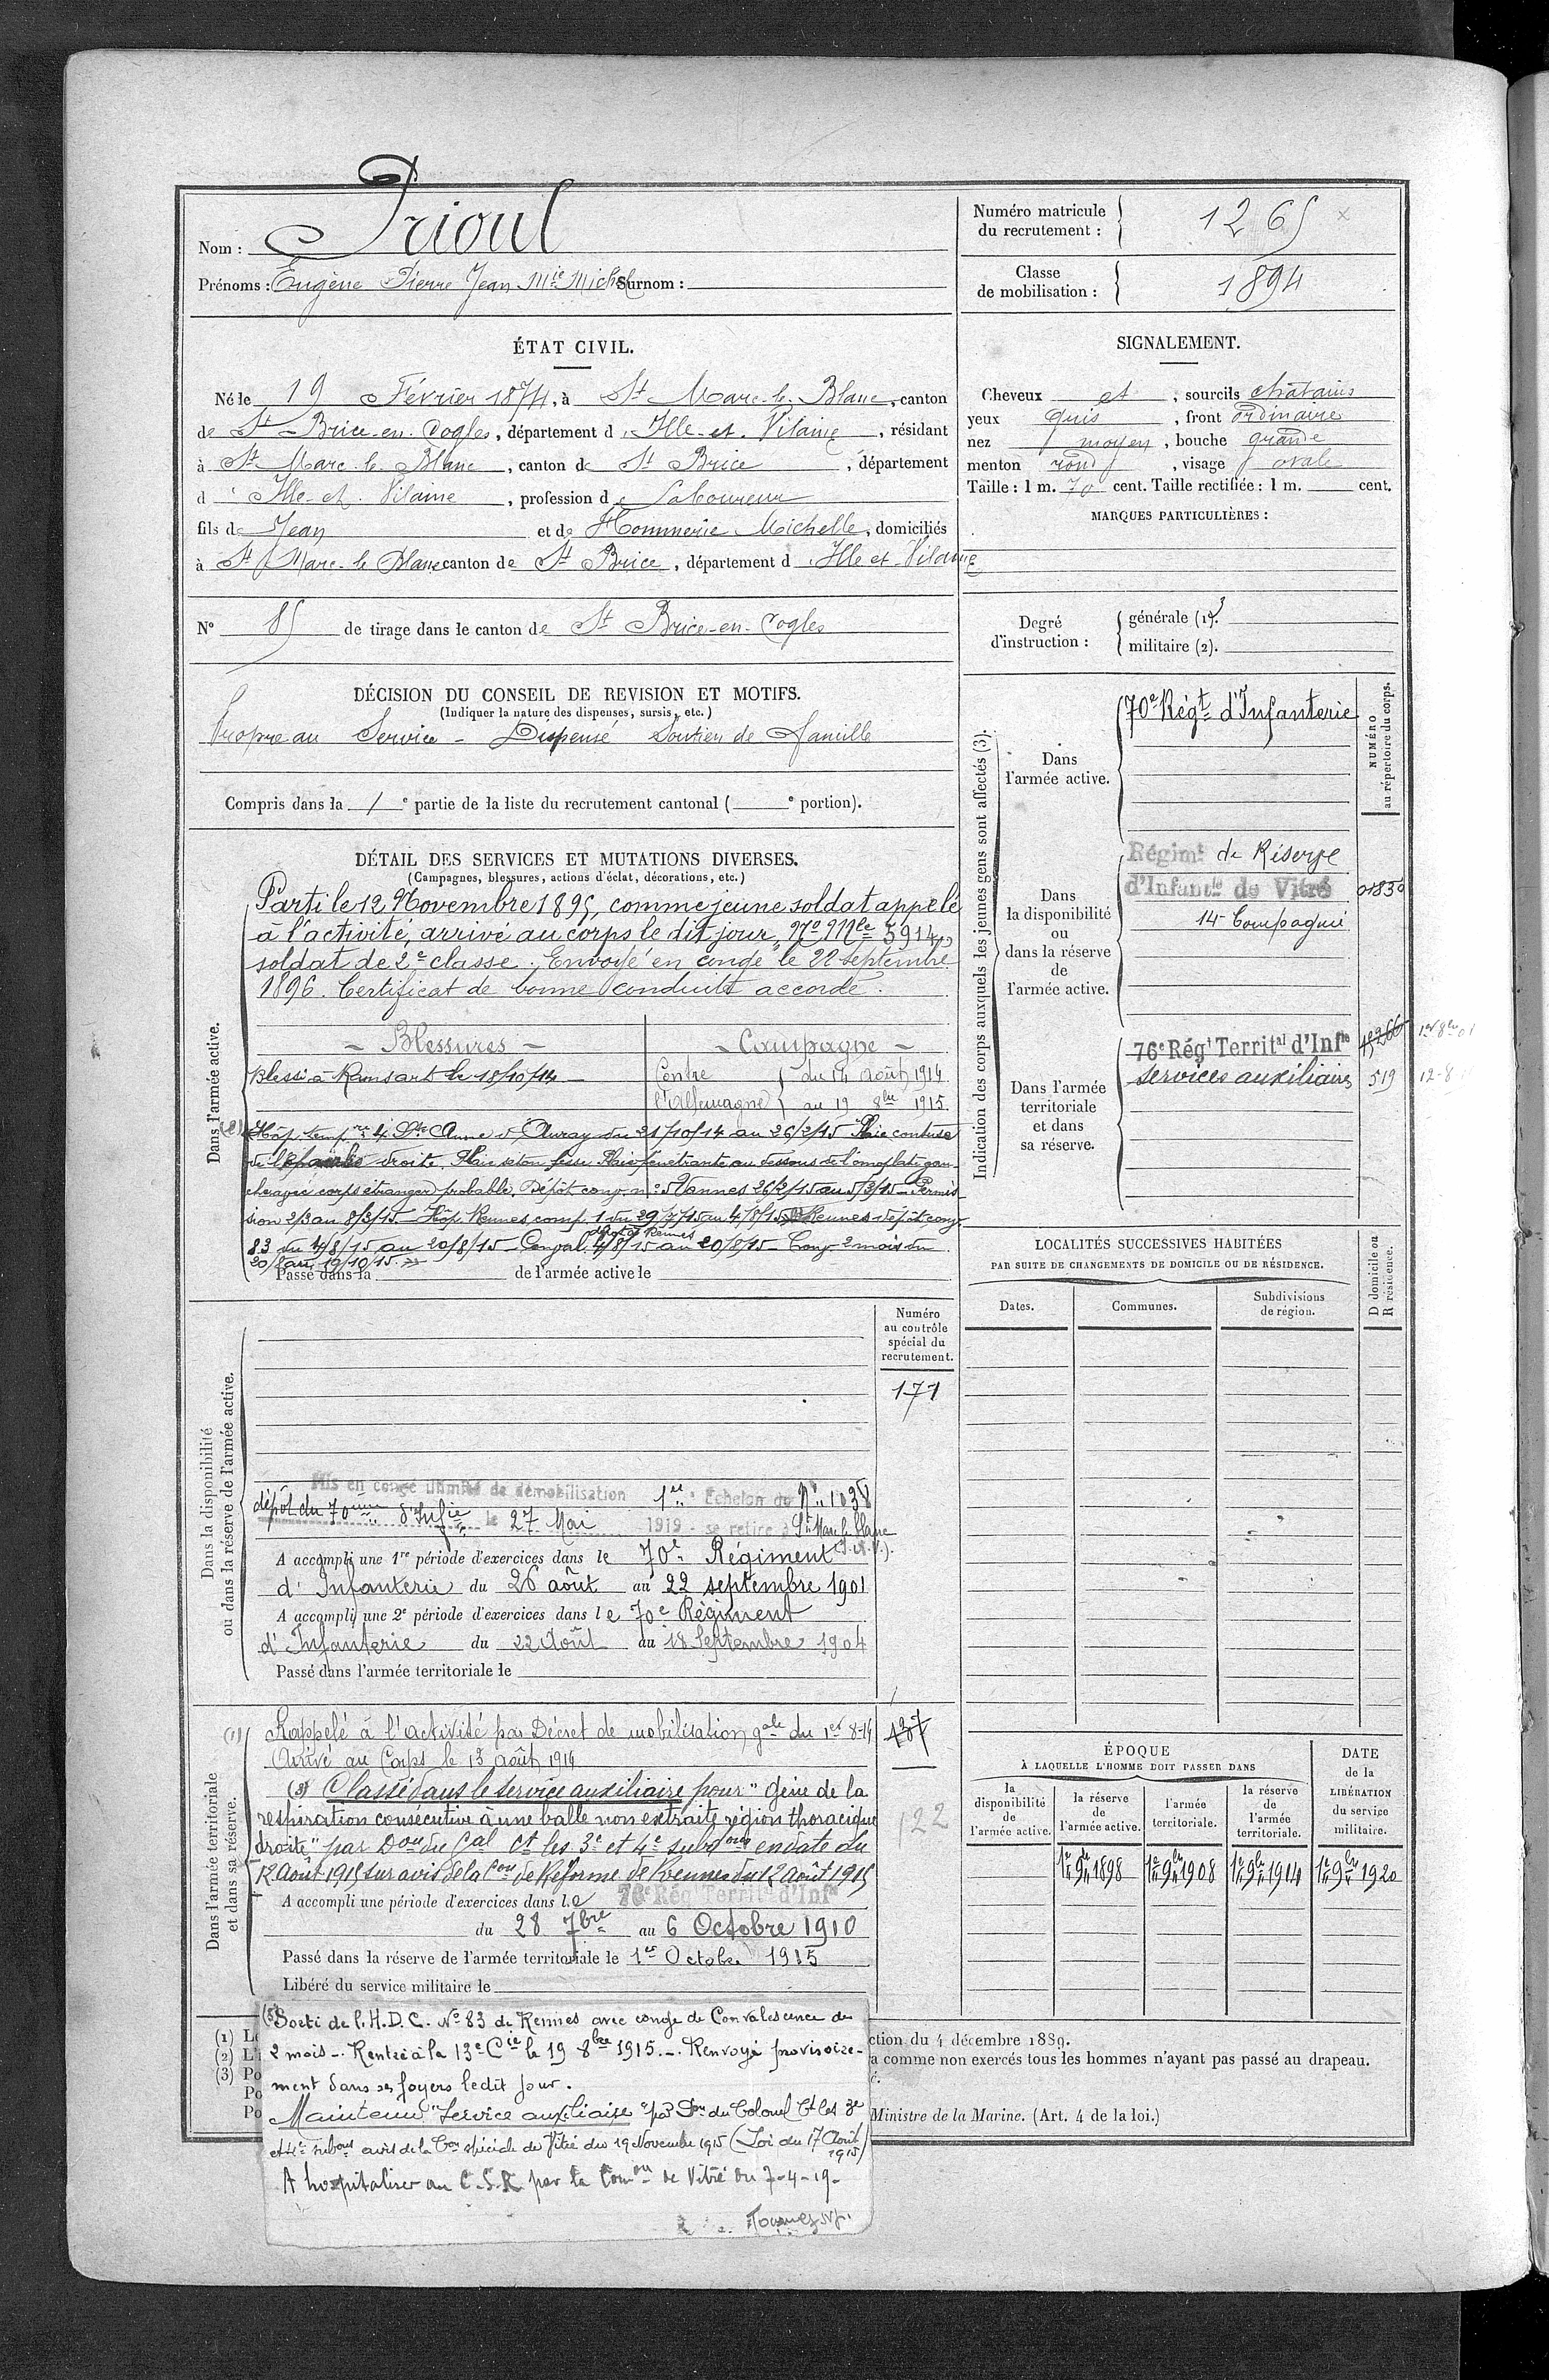 Nom : Prioul
Prénoms : Eugène Pierre Jean Mie Michel Surnom :
Numéro matricule du recrutement : 1265 x
Classe de mobilisation : 1894
ÉTAT CIVIL.
Né le 19 Février 1874, à St Marc-le-Blanc, canton
de St-Brice-en-Cogles, département d'Ille-et-Vilaine, résidant
à St Marc-le-Blanc, canton de St Brice, département
d'Ille-et-Vilaine, profession de Laboureur
fils de Jean et de Hommerie Michelle, domiciliés
à St Marc-le-Blanc canton de St Brice, département d'Ille et-Vilaine
N° 85 de tirage dans le canton de St Brice-en-Cogles
SIGNALEMENT.
Cheveux et, sourcils chatains
yeux gris, front ordinaire
nez moyen, bouche grande
menton rond, visage ovale
Taille : 1 m. 70 cent. Taille rectifiée : 1 m. cent.
MARQUES PARTICULIÈRES :
Degré d'instruction :
générale (1). 3
militaire (2).
DÉCISION DU CONSEIL DE REVISION ET MOTIFS.
(Indiquer la nature des dispenses, sursis, etc.)
Propre au Service - Dispensé Soutien de famille
Compris dans la 1e partie de la liste du recrutement cantonal ( e portion).
DÉTAIL DES SERVICES ET MUTATIONS DIVERSES.
(Campagnes, blessures, actions d'éclat, décorations, etc.)
Dans l'armée active.
Parti le 12 Novembre 1895, comme jeune soldat appelé
à l'activité, arrivé au corps le dit jour, No Mle 3914,
soldat de 2e classe. Envoyé en congé le 22 septembre
1896. Certificat de bonne conduite accordé.
- Blessures -
- Campagne -
Blessé à Ransart le 18/10/14
Contre l'Allemagne
du 14 août 1914
au 19 8bre 1915.
(2) Hôp. tempre 4 Ste Anne d'Auray du 21/10/14 au 26/2/15 Plaie contuse
de l'épaule droite. Plaie séton fesse Plaie pénétrante au dessous de l'omoplate gau-
che avec corps étranger probable. Dépôt conv. n° 5 Vannes 26/2/15 au 5/3/15 - Permis-
sion 2/3 au 8/3/15 - Hôp Rennes comp. 1 du 29/7/15 au 4/8/15 Rennes dépôt conv.
83 du 4/8/15 au 20/8/15 - Conval. dépôt Rennes 4/8/15 au 20/8/15 - Cong 2 mois du
20/8 au 19/10/15
Passé dans la de l'armée active le
Indication des corps auxquels les jeunes gens sont affectés (3).
NUMÉRO au répertoire du corps.
Dans l'armée active.
70e Régt d'Infanterie
Dans la disponibilité ou dans la réserve de l'armée active.
Régimt de Réserve
d'Infantie de Vitré 01830
14e Compagnie
Dans l'armée territoriale et dans sa réserve.
76e Régt Territal d'Infie
Services auxiliaires 519
LOCALITÉS SUCCESSIVES HABITÉES
PAR SUITE DE CHANGEMENTS DE DOMICILE OU DE RÉSIDENCE.
Dates. Communes. Subdivisions de région. D domicile ou R résidence.
Dans la disponibilité ou dans la réserve de l'armée active.
Numéro au contrôle spécial du recrutement.
171
Mis en congé illimité de démobilisation 1er Echelon du No 1038
dépôt du 70ème d'Infie le 27 Mai 1919 - se retire à St Marc le Blanc
(I. & V.).
A accompli une 1re période d'exercices dans le 70e Régiment
d'Infanterie du 26 août au 22 septembre 1901
A accompli une 2e période d'exercices dans le 70e Régiment
d'Infanterie du 22 Août au 18 Septembre 1904
Passé dans l'armée territoriale le
Dans l'armée territoriale et dans sa réserve.
(1) Rappelé à l'activité par Décret de mobilisation gale du 1er 8-14
Arrivé au Corps le 13 août 1914
(3) Classé dans le service auxiliaire pour "Gêne de la
respiration consécutive à une balle non extraite région thoracique
droite" par Don du Gal Ct les 3e et 4e subons en date du
12 Août 1915 sur avis de la Con de Réforme de Rennes du 12 Août 1915
A accompli une période d'exercices dans le 76e Rég Territl d'Infie
du 28 7bre au 6 Octobre 1910
Passé dans la réserve de l'armée territoriale le 1er Octobre 1915
Libéré du service militaire le
122
ÉPOQUE
À LAQUELLE L'HOMME DOIT PASSER DANS
la disponibilité de l'armée active.
la réserve de l'armée active.
l'armée territoriale.
la réserve de l'armée territoriale.
DATE de la LIBÉRATION du service militaire.
1er 9bre 1898 1er 9bre 1908 1er 9bre 1914 1er 9bre 1920
(5) Sorti de l'H.D.C. No 83 de Rennes avec congé de Convalescence de
2 mois -. Rentré à la 13e Cie le 19 8bre 1915. -. Renvoyé provisoire-
ment dans ses foyers ledit jour.
Maintenu "Service auxiliaire" par Don du Colonel Ct les 3e
et 4e subons avis de la Con spéciale de Vitré du 19 Novembre 1915 (Loi du 17 Août 1915)
A hospitaliser au C.S.R par la Comon de Vitré du 7-4-19-
(1) L
(2) L'
(3) Po
Po
Po
ction du 4 décembre 1889.
a comme non exercés tous les hommes n'ayant pas passé au drapeau.
é.
Ministre de la Marine. (Art. 4 de la loi.)